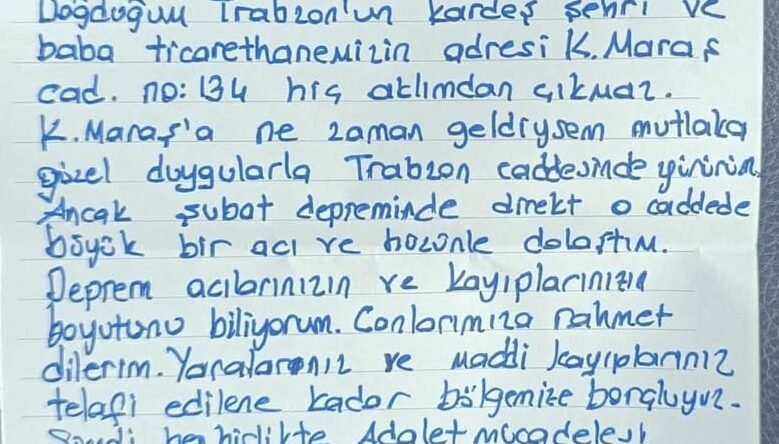 Doğduğum Trabzon'un kardeş şehri ve
baba ticarethanemizin adresi K.Maraş
cad. no:134 hiç aklımdan çıkmaz.
K.Maraş'a ne zaman geldiysem mutlaka
güzel duygularla Trabzon caddesinde yürürüm.
Ancak şubat depreminde direkt o caddede
büyük bir acı ve hüzünle dolaştım.
Deprem acılarınızın ve kayıplarınızın
boyutunu biliyorum. Canlarımıza rahmet
dilerim. Yaralarınız ve maddi kayıplarınız
telafi edilene kadar bölgemize borçluyuz.
hep birlikte Adalet mücadelesi